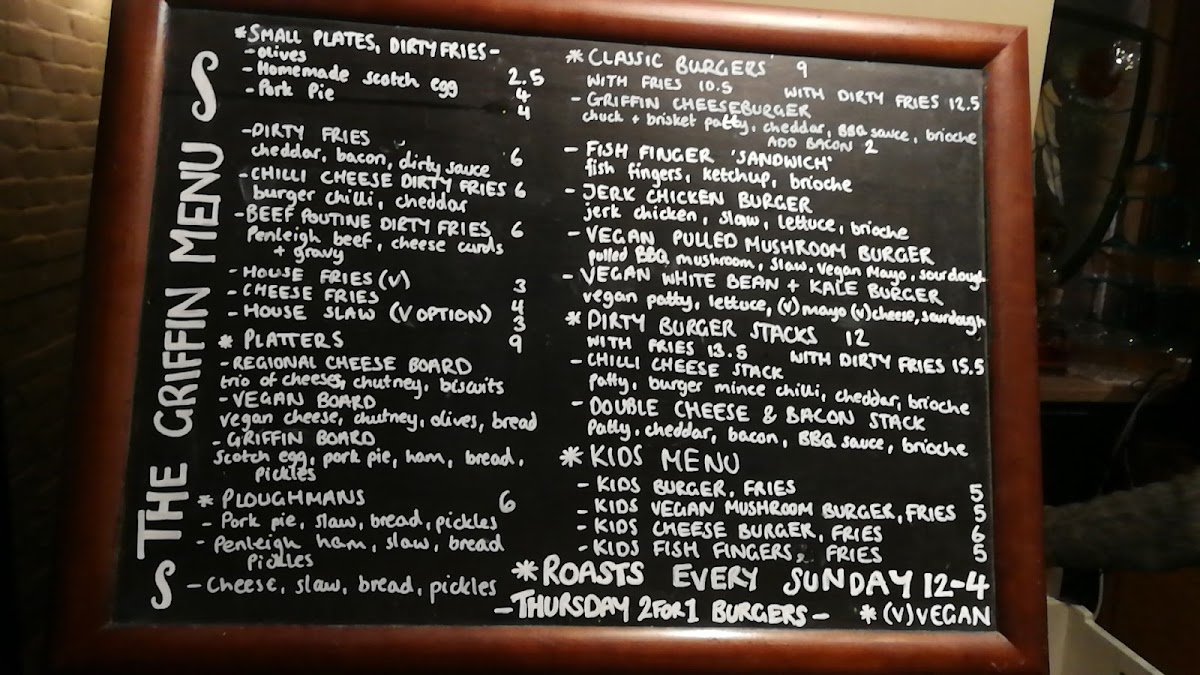 THE GRIFFIN MENU
*SMALL PLATES, DIRTY FRIES-
-olives 2.5
-Homemade scotch egg 4
-Pork Pie 4
-DIRTY FRIES 6
cheddar, bacon, dirty sauce
-CHILLI CHEESE DIRTY FRIES 6
burger chilli, cheddar
-BEEF POUTINE DIRTY FRIES 6
Penleigh beef, cheese curds
+ gravy
-HOUSE FRIES (V) 3
-CHEESE FRIES 4
-HOUSE SLAW (V OPTION) 3
* PLATTERS 9
-REGIONAL CHEESE BOARD
trio of cheeses, chutney, biscuits
-VEGAN BOARD
vegan cheese, chutney, olives, bread
-GRIFFIN BOARD
scotch egg, pork pie, ham, bread,
pickles
* PLOUGHMANS 6
- Pork pie, slaw, bread, pickles
- Penleigh ham, slaw, bread
pickles
- cheese, slaw, bread, pickles
* CLASSIC BURGERS 9
WITH FRIES 10.5 WITH DIRTY FRIES 12.5
- GRIFFIN CHEESEBURGER
chuck + brisket patty, cheddar, BBQ sauce, brioche
ADD BACON 2
- FISH FINGER 'SANDWICH'
fish fingers, ketchup, brioche
- JERK CHICKEN BURGER
jerk chicken, slaw, lettuce, brioche
- VEGAN PULLED MUSHROOM BURGER
pulled BBQ mushroom, slaw, vegan mayo, sourdough
- VEGAN WHITE BEAN + KALE BURGER
vegan patty, lettuce, (v)mayo (v)cheese, sourdough
* DIRTY BURGER STACKS 12
WITH FRIES 13.5 WITH DIRTY FRIES 15.5
- CHILLI CHEESE STACK
patty, burger mince chilli, cheddar, brioche
- DOUBLE CHEESE & BACON STACK
patty, cheddar, bacon, BBQ sauce, brioche
* KIDS MENU
- KIDS BURGER, FRIES 5
- KIDS VEGAN MUSHROOM BURGER, FRIES 5
- KIDS CHEESE BURGER, FRIES 6
- KIDS FISH FINGERS, FRIES 5
*ROASTS EVERY SUNDAY 12-4
-THURSDAY 2 FOR 1 BURGERS- *(V) VEGAN